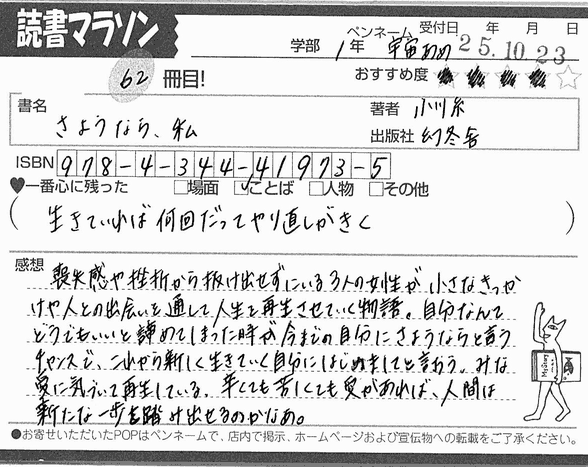 読書マラソン
学部 1年 ペンネーム 宇宙あめ 受付日 年 月 日
25.10.23
62 冊目!
おすすめ度 ★★★★☆
書名 さようなら、私
著者 小川糸
出版社 幻冬舎
ISBN 978-4-344-41973-5
♥一番心に残った □場面 ☑ことば □人物 □その他
(生きていれば何回だってやり直しがきく)
感想
喪失感や挫折から抜け出せずにいる3人の女性が小さなきっか
けや人との出会いを通して人生を再生させていく物語。自分なんて
どうでもいいと諦めてしまった時が今までの自分にさようならと言う
チャンスで、これから新しく生きていく自分にはじめましてと言おう。みな
愛に気づいて再生している。辛くても苦しくても愛があれば、人間は
新たな一歩を踏み出せるのかなあ。
●お寄せいただいたPOPはペンネームで、店内で掲示、ホームページおよび宣伝物への転載をご了承ください。